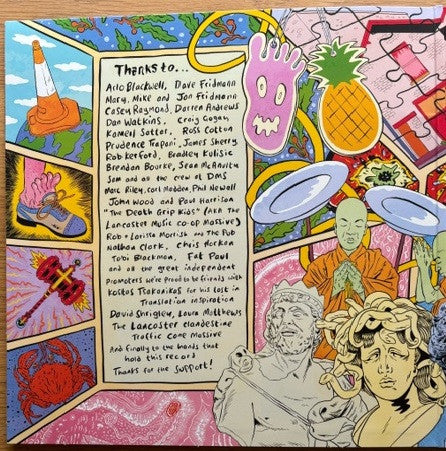 Thanks to...
Arlo Blackwell, Dave Fridmann
Mary, Mike and Jon Fridmann
Casey Raymond, Darren Andrews
Dan Watkins, Craig Gogan
Kamell Sattar, Ross Cotton
Prudence Trapani, James Sherry
Rob Kerford, Bradley Kulisic
Brendan Bourke, Sean McAnulty
Sam and all the crew at DMS
Marc Riley, Carl Maddox, Phil Newall
John Wood and Paul Harrison
"The Death Grip Kids" (AKA The
Lancaster Music co-op Massive)
Rob + Larissa and The Pub
Nathan Clark, Chris Horkan
Tobi Blackman, Fat Paul
and all the great independent
Promoters we're proud to be friends with
Kostas Tsakanikas for his lost in
Translation inspiration
David Shrigley, Laura Matthews
The Lancaster clandestine
Traffic Cone Massive
And finally to the hands that
hold this record
Thanks for the support!